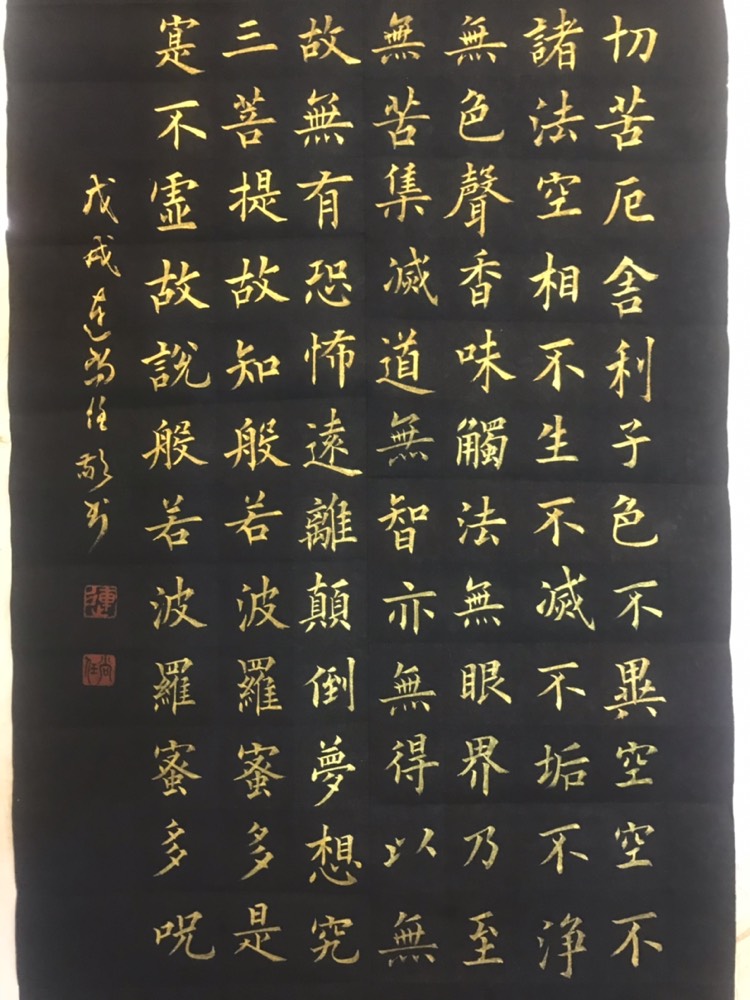 切苦厄舍利子色不異空空不
諸法空相不生不滅不垢不淨
無色聲香味觸法無眼界乃至
無苦集滅道無智亦無得以無
故無有恐怖遠離顛倒夢想究
三菩提故知般若波羅蜜多是
寔不虛故說般若波羅蜜多呪
戊戌連尚任敬书